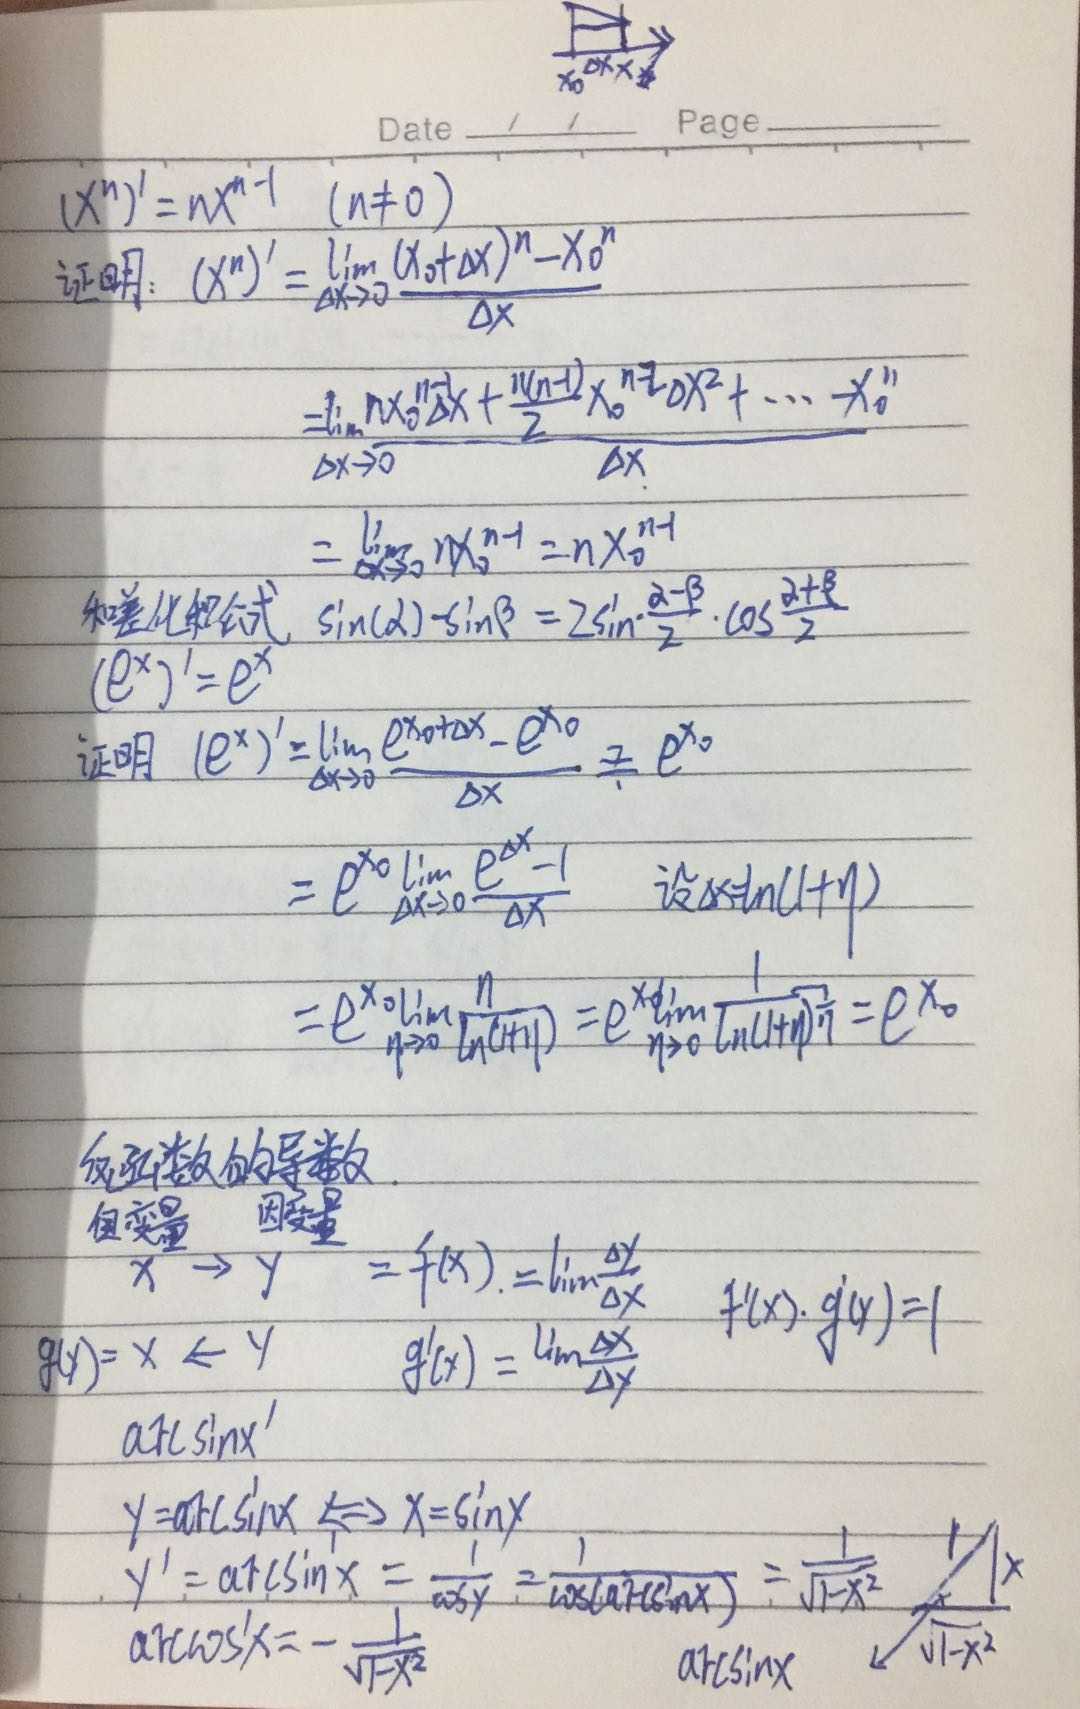 x₀ Δx x
Date / / Page
(xⁿ)' = nxⁿ⁻¹ (n≠0)
证明: (xⁿ)' = lim_{Δx→0} ((x₀+Δx)ⁿ - x₀ⁿ)/Δx
= lim_{Δx→0} (nx₀ⁿ⁻¹Δx + (n(n-1)/2) x₀ⁿ⁻²Δx² + ⋯ - x₀ⁿ)/Δx
= lim_{Δx→0} nx₀ⁿ⁻¹ = nx₀ⁿ⁻¹
和差化积公式 sin(α)-sinβ = 2sin·(α-β)/2 · cos (α+β)/2
(eˣ)' = eˣ
证明 (eˣ)' = lim_{Δx→0} (e^{x₀+Δx} - e^{x₀})/Δx = e^{x₀}
= e^{x₀} lim_{Δx→0} (e^{Δx}-1)/Δx 设Δx=ln(1+η)
= e^{x₀} lim_{η→0} η/ln(1+η) = e^{x₀} lim_{η→0} 1/ln(1+η)^{1/η} = e^{x₀}
反函数的导数.
自变量 因变量
x → y = f(x). = lim Δy/Δx
f'(x)·g'(y)=1
g(y)= x ← y g'(x) = lim Δx/Δy
arcsinx'
y=arcsinx ⟺ x=siny
y' = arcsin'x = 1/cosy = 1/cos(arcsinx) = 1/√(1-x²)
1 x
arccos'x = - 1/√(1-x²)
arcsinx √(1-x²)